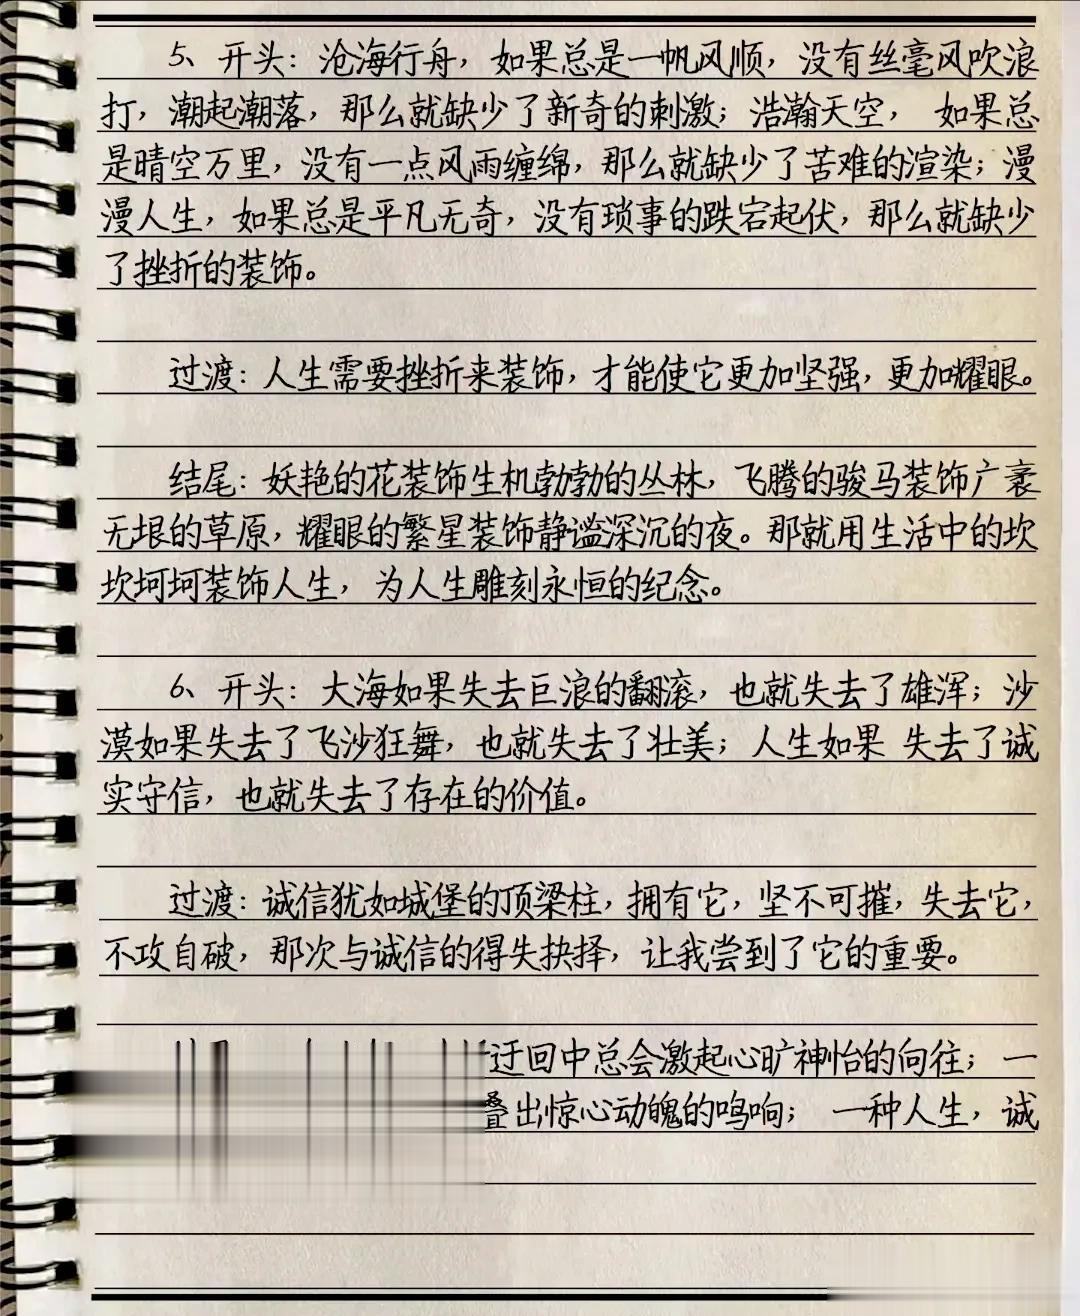 5、开头：沧海行舟，如果总是一帆风顺，没有丝毫风吹浪
打，潮起潮落，那么就缺少了新奇的刺激；浩瀚天空， 如果总
是晴空万里，没有一点风雨缠绵，那么就缺少了苦难的渲染；漫
漫人生，如果总是平凡无奇，没有琐事的跌宕起伏，那么就缺少
了挫折的装饰。
过渡：人生需要挫折来装饰，才能使它更加坚强，更加耀眼。
结尾：妖艳的花装饰生机勃勃的丛林，飞腾的骏马装饰广袤
无垠的草原，耀眼的繁星装饰静谧深沉的夜。那就用生活中的坎
坎坷坷装饰人生，为人生雕刻永恒的纪念。
6、开头：大海如果失去巨浪的翻滚，也就失去了雄浑；沙
漠如果失去了飞沙狂舞，也就失去了壮美；人生如果 失去了诚
实守信，也就失去了存在的价值。
过渡：诚信犹如城堡的顶梁柱，拥有它，坚不可摧，失去它，
不攻自破，那次与诚信的得失抉择，让我尝到了它的重要。
迂回中总会激起心旷神怡的向往；一
叠出惊心动魄的鸣响； 一种人生，诚